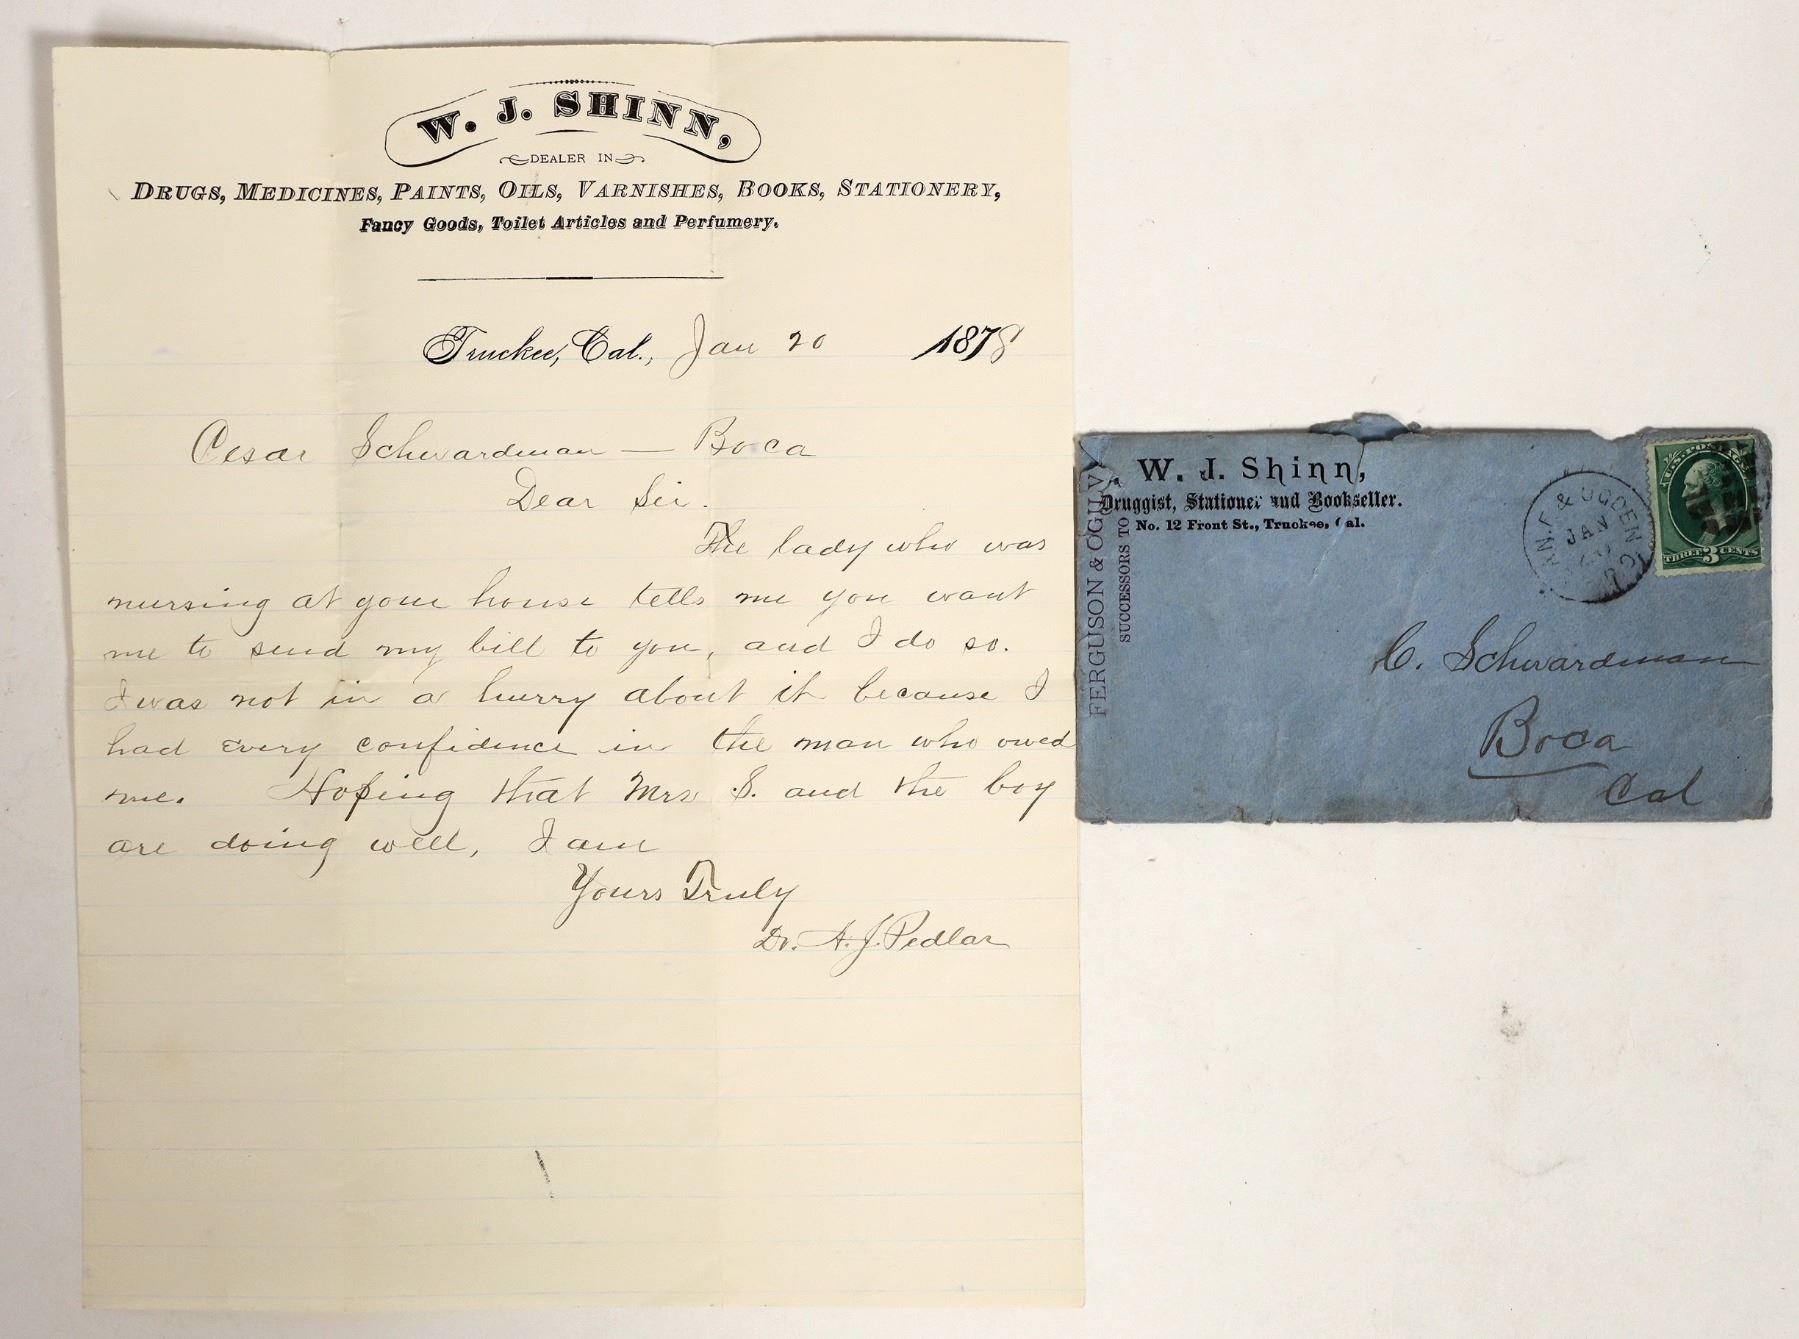 W. J. SHINN,
DEALER IN
DRUGS, MEDICINES, PAINTS, OILS, VARNISHES, BOOKS, STATIONERY,
Fancy Goods, Toilet Articles and Perfumery.
Truckee, Cal., Jan 20 1878
Cesar Schwardman — Boca
Dear Sir.
The lady who was
nursing at your house tells me you want
me to send my bill to you, and I do so.
I was not in a hurry about it because I
had every confidence in the man who owed
me. Hoping that Mrs S. and the boy
are doing well, I am
Yours Truly
Dr. A. J. Pedlar
W. J. Shinn,
Druggist, Stationer and Bookseller.
No. 12 Front St., Truckee, Cal.
SUCCESSORS TO
FERGUSON & OGILVY
& OGDEN
JAN
20
U.S. POSTAGE
THREE 3 CENTS
C. Schwardman
Boca
Cal